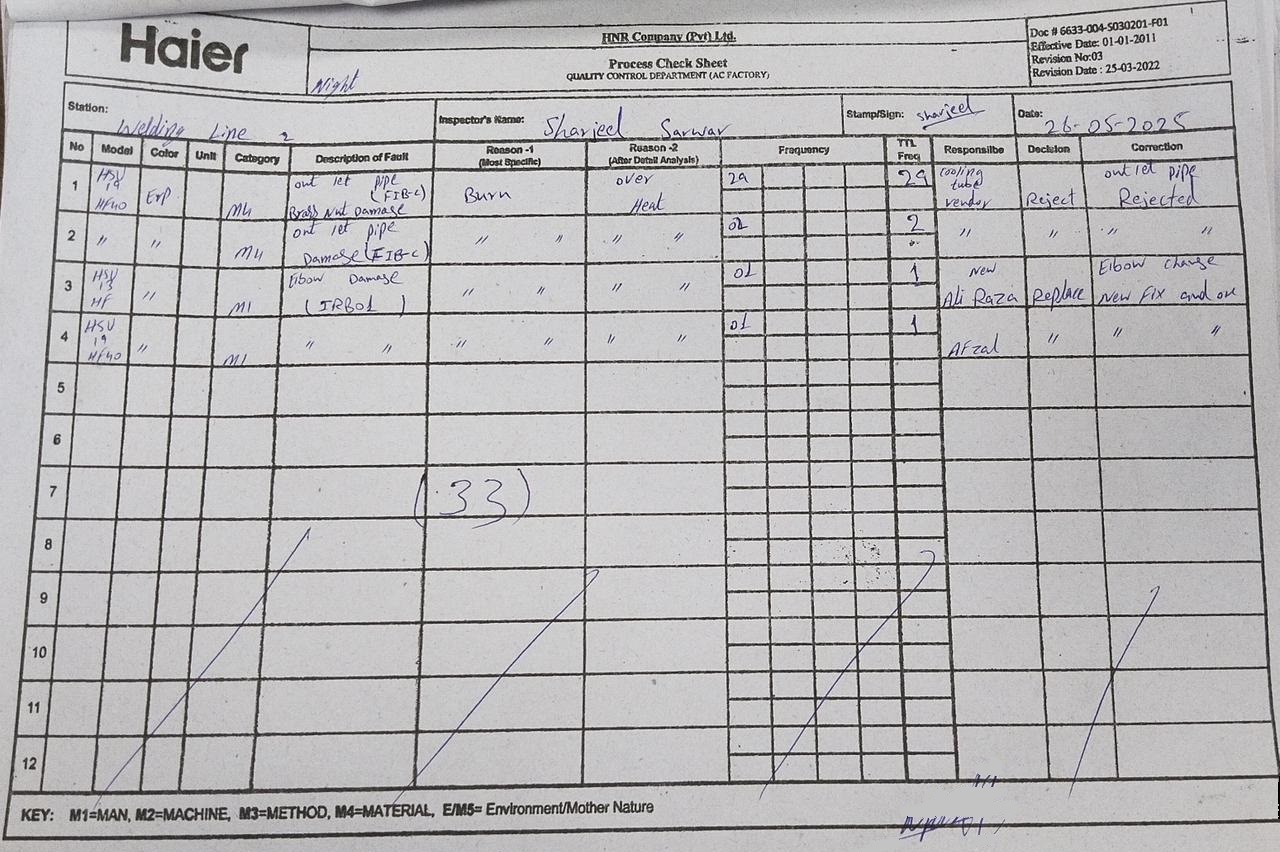 Haier
HNR Company (Pvt) Ltd.
Process Check Sheet
QUALITY CONTROL DEPARTMENT (AC FACTORY)
Night
Doc # 6633-004-S030201-F01
Effective Date: 01-01-2011
Revision No:03
Revision Date : 25-03-2022
Station: Welding Line 2
Inspector's Name: Sharjeel Sarwar
Stamp/Sign: sharjeel
Date: 26-05-2025
No Model Color Unit Category Description of Fault Reason -1 (Most Specific) Reason -2 (After Detail Analysis) Frequency TTL Freq Responsilbe Decision Correction
1 HSU 19 HF40 ErP M4 out let pipe (FIB-C) Brass Nut Damage Burn over Heat 29 29 cooling tube vendor Reject out let pipe Rejected
2 " " M4 out let pipe Damage (FIB-C) " " " " 02 2 " " " "
3 HSU 13 HF " M1 Elbow Damage (IRB01) " " " " 01 1 New Ali Raza Replace Elbow change New Fix and ok
4 HSU 19 HF40 " M1 " " " " " " 01 1 Afzal " " "
5
6
7 (33)
8
9
10
11
12
KEY: M1=MAN, M2=MACHINE, M3=METHOD, M4=MATERIAL, E/M5= Environment/Mother Nature